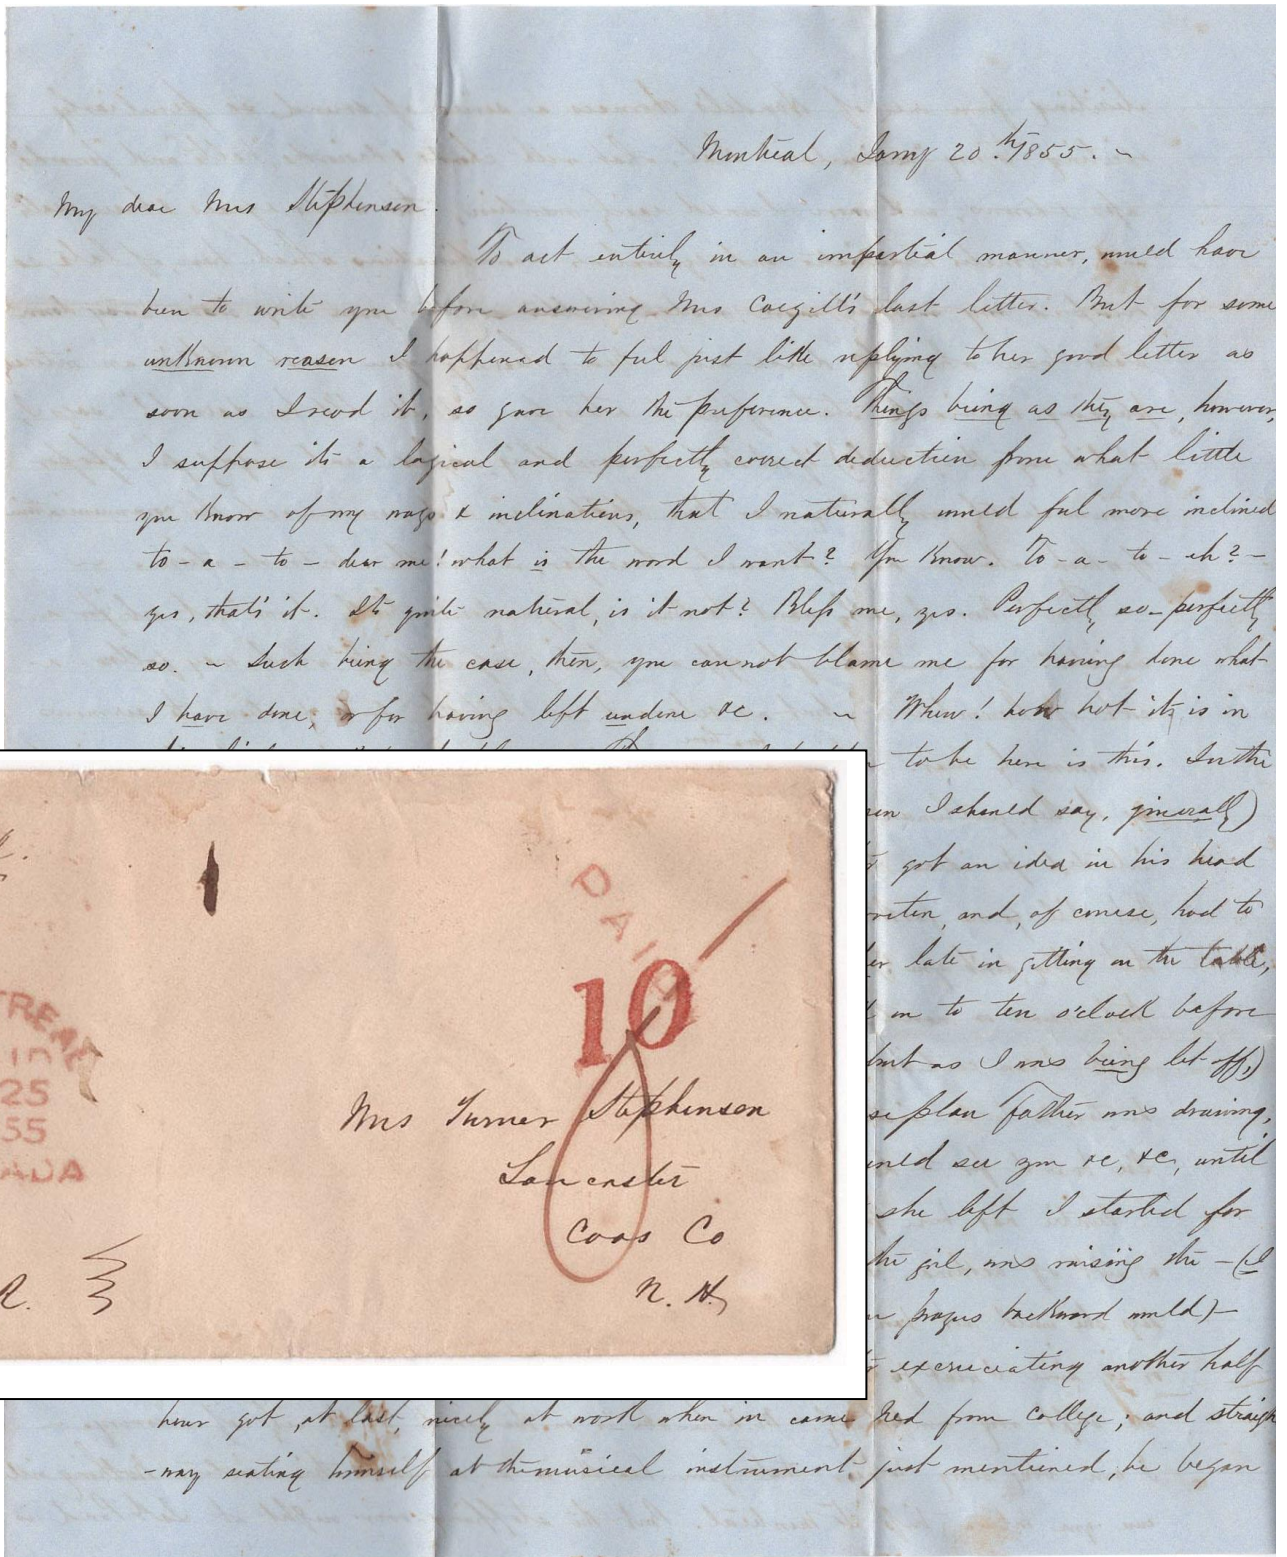 Montreal, Jany 20th 1855. ~
My dear Mrs Stephenson.
To act entirely in an impartial manner, would have
been to write you before answering Mrs Cargill's last letter. But for some
unknown reason I happened to feel just like replying to her good letter as
soon as I read it, so gave her the preference. Things being as they are, however,
I suppose its a logical and perfectly correct deduction from what little
you know of my ways & inclinations, that I naturally would feel more inclined
to - a - to - dear me! what is the word I want? You know. To - a - to - eh? -
yes, that's it. Its quite natural, is it not? Bless me, yes. Perfectly so - perfectly
so. ~ Such being the case, then, you cannot blame me for having done what
I have done, or for having left undone &c. ~ Whew! how hot it is in
to be here is this. In the
I should say, ginerally)
got an idea in his head
and, of course, had to
late in getting on the table,
on to ten o'clock before
but as I was being let off,)
plan Father was drawing,
see you &c, &c, until
she left I started for
the girl, was raising the - (I
backward would) -
excruciating another half
hour got, at last, nicely at work when in came Ned from college; and straigh
-way seating himself at the musical instrument just mentioned, he began
PAID
10
TREAL
25
55
ADA
Mrs Turner Stephenson
Lancaster
Coos Co
N. H.